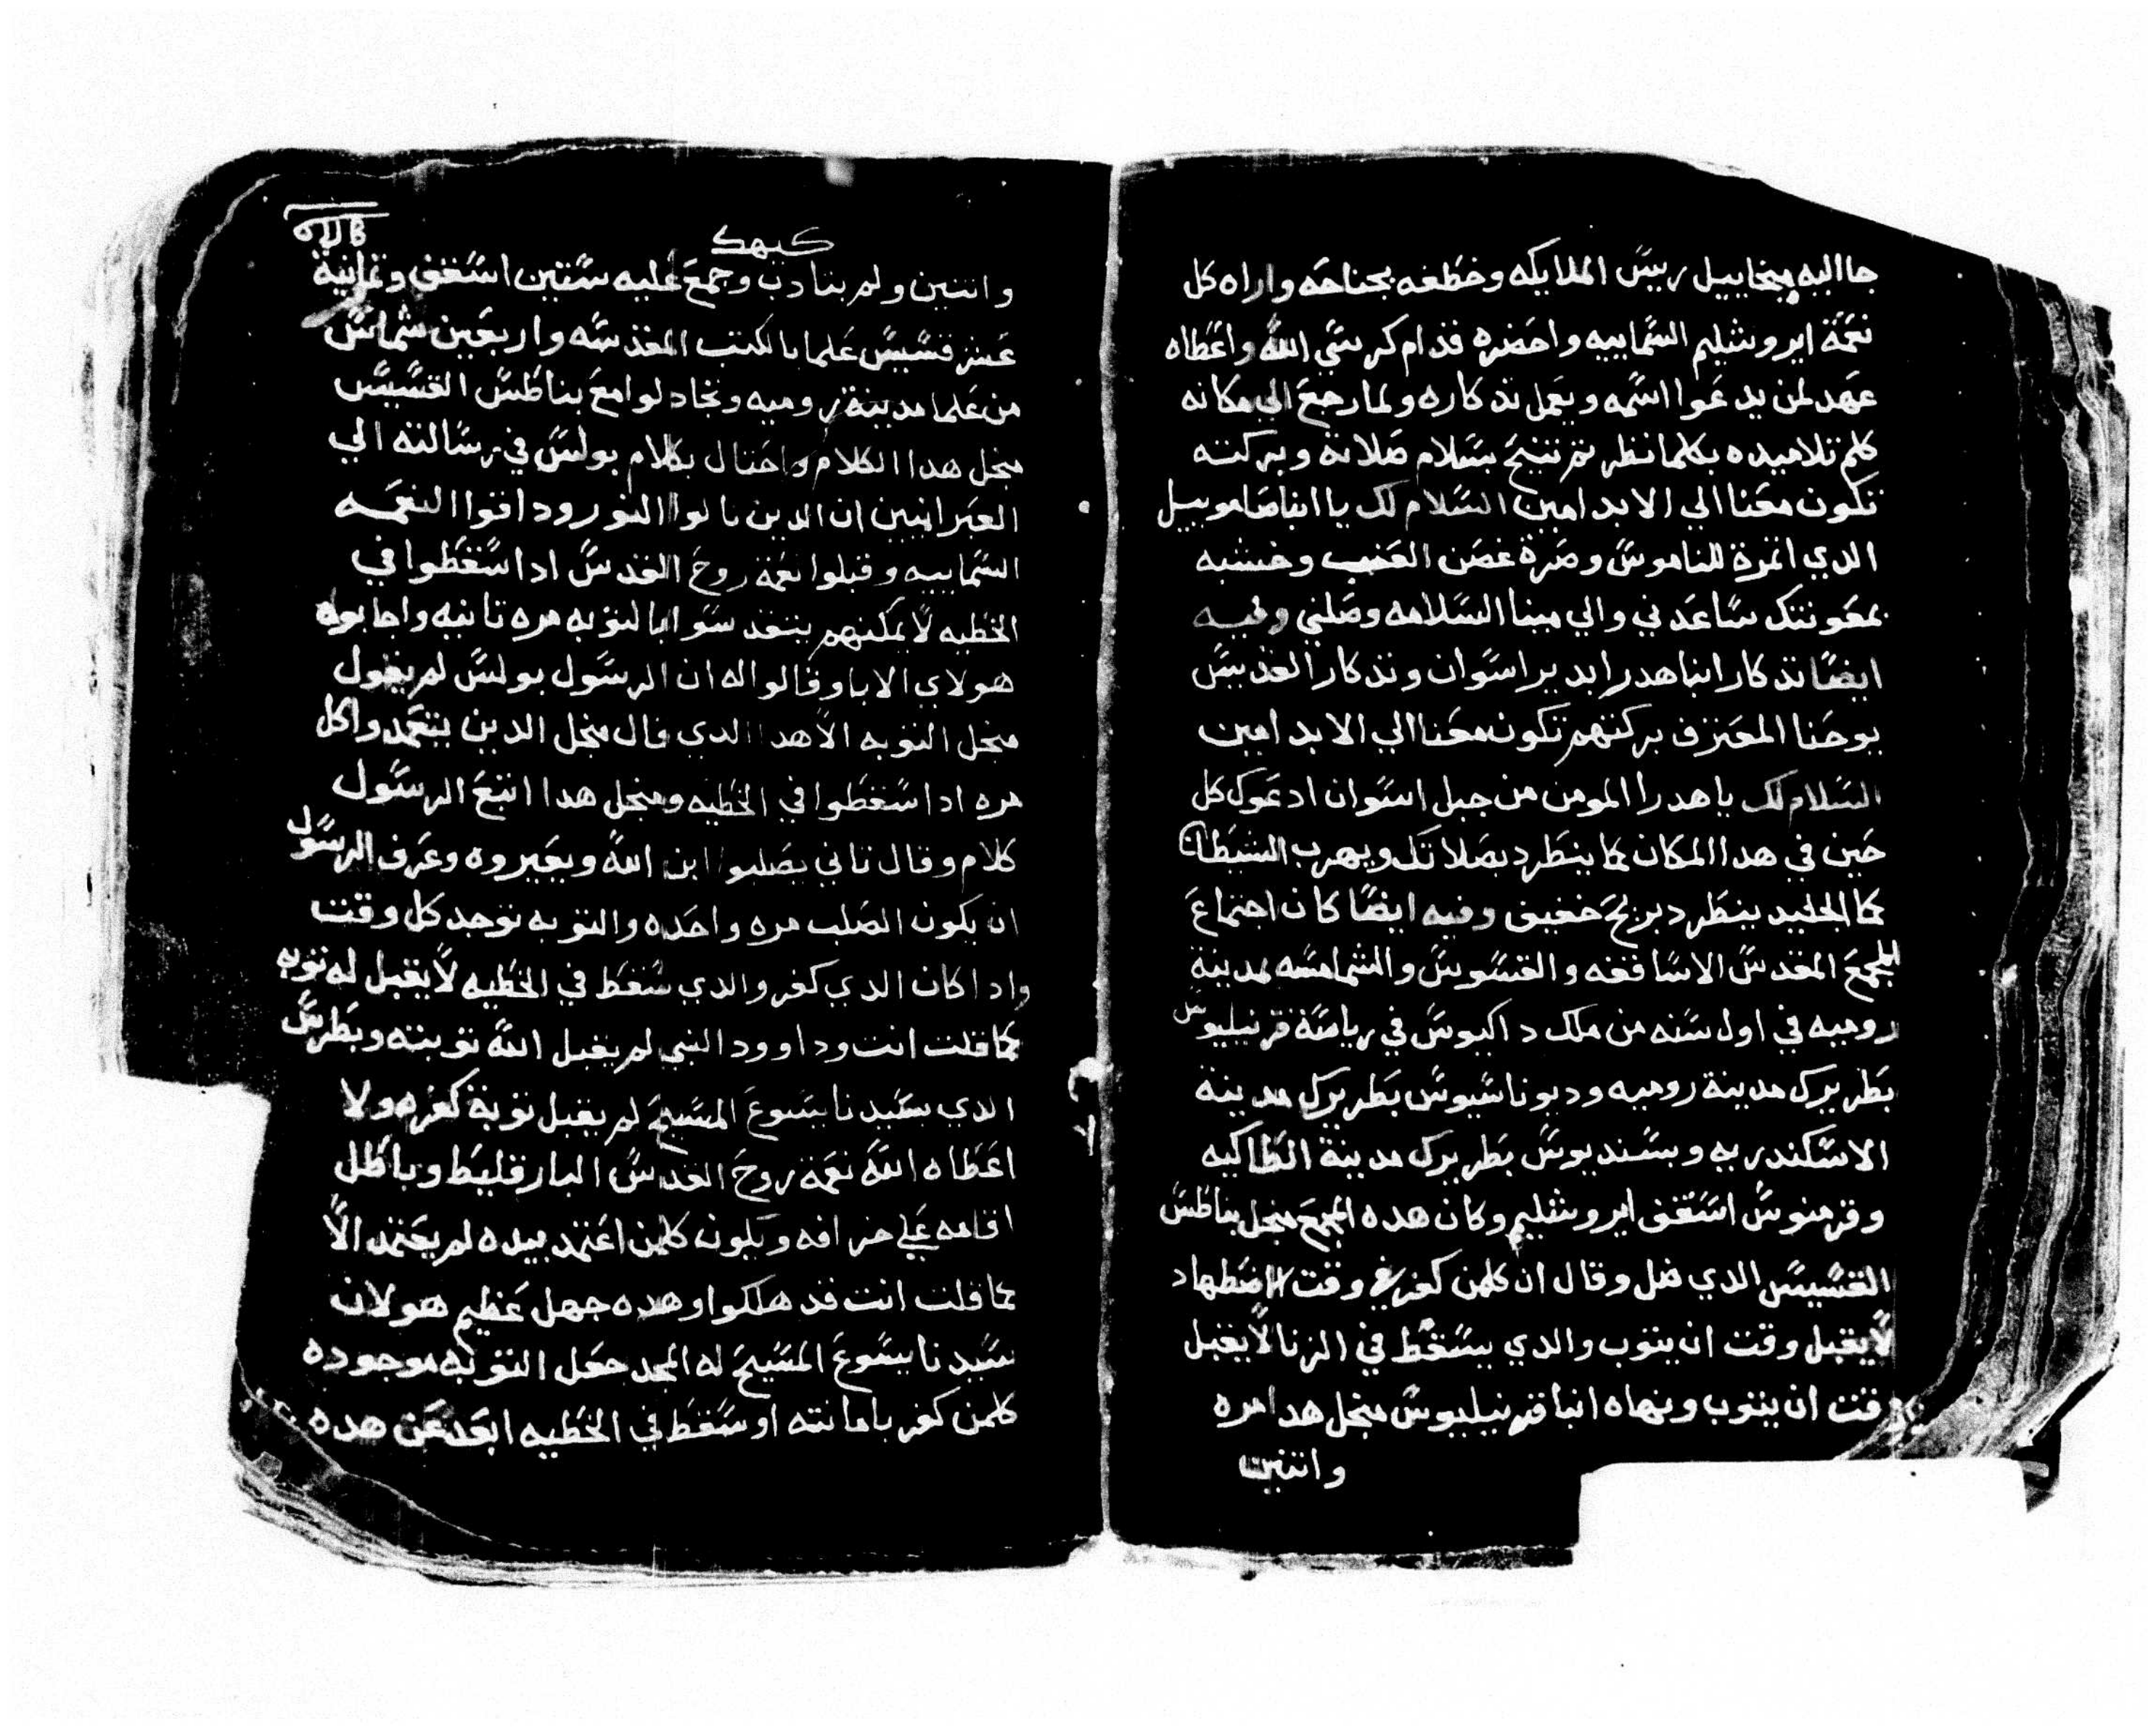 جا اليه ميخاييل رييس الملايكه وخطفه بجناحه واراه كل
نعمة ايروشليم السماييه واحضره قدام كرسي الله واعطاه
عهد لمن يدعوا اسمه ويعمل تدكاره ولما رجع الي مكانه
كلم تلاميده بكلما نظر تم تنيح بسلام صلاته وبركته
تكون معنا الي الابد امين السلام لك يا انبا صاموييل
الدي اتمرة للناموس وصرة غصن العنب وخشبه
بمعونتك ساعدني والي مينا السلامه وصلني وفيه
ايضا تدكار انبا هدرا بدير اسوان وتدكار القديس
يوحنا المعترف بركتهم تكون معنا الي الابد امين
السلام لك يا هدرا المومن من جبل اسوان ادعوك كل
حين في هدا المكان كما ينطرد بصلاتك ويهرب الشيطان
كما الجليد ينطرد بريح خفيف وفيه ايضا كان اجتماع
المجمع المقدس الاساقفه والقسوس والشمامسه لمدينة
روميه في اول سنه من ملك داكيوس في رياسة قرنيليوس
بطريرك مدينة روميه وديوناسيوس بطريرك مدينة
الاسكندريه وبسنديوس بطريرك مدينة انطاكيه
وقرمنوس اسقف ايروشليم وكان هده المجمع منجل بناطس
القسيس الدي ضل وقال ان كلمن كفر في وقت الاضطهاد
لا يقبل وقت ان يتوب والدي يسقط في الزنا لا يقبل
وقت ان يتوب ونهاه انبا قرنيليوس منجل هدا مره
واتنين
كيهك
واتنين ولم يتادب وجمع عليه ستين اسقف وتمانية
عشر قسيس علما بالكتب المقدسه واربعين شماس
من علما مدينة روميه وتجادلوا مع بناطس القسيس
منجل هدا الكلام واحتال بكلام بولس في رسالته الي
العبرانيين ان الدين نالوا النور ودافوا النعمه
السماييه وقبلوا نعمة روح القدس ادا سقطوا في
الخطيه لا يمكنهم يتجدد سوا بالتوبه مره تانيه واجابوه
هولاي الابا وقالوا له ان الرسول بولس لم يقول
منجل التوبه الا هدا الدي قال منجل الدين يتعمدوا كل
مره ادا سقطوا في الخطيه ومنجل هدا اتبع الرسول
كلام وقال تاني يصلبوا ابن الله ويعيروه وعرف الرسول
ان يكون الصلب مره واحده والتوبه توجد كل وقت
وادا كان الدي كفر والدي سقط في الخطيه لا يقبل له توبه
كما قلت انت وداوود النبي لم يقبل الله توبته وبطرس
الدي بسيدنا يسوع المسيح لم يقبل توبة كفره ولا
اعطاه الله نعمة روح القدس البارقليط وباطل
اقامه علي خرافه ويكون كلمن اعتمد بيده لم يعتمد الا
كما قلت انت قد هلكوا وهده جهل عظيم هو لان
سيدنا يسوع المسيح له المجد جعل التوبه موجوده
كلمن كفر بامانته او سقط في الخطيه ابعد عن هده